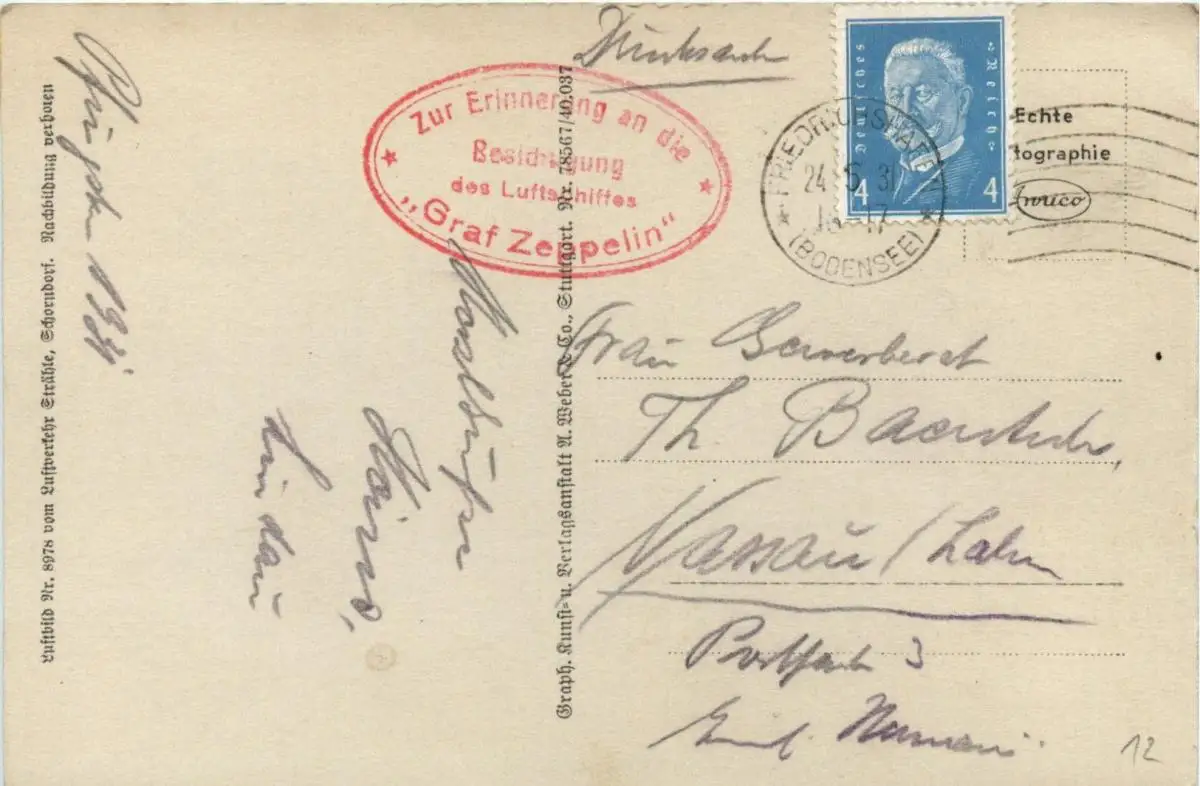 Drucksache
Pfingsten 1931
Zur Erinnerung an die
Besichtigung
des Luftschiffes
„Graf Zeppelin“
Deutsches Reich
4 4
FRIEDRICHSHAFEN
24 5 31
17
(BODENSEE)
Echte
tographie
Frau Gewerberat
Th
Nassau / Lahn
Postfach 3
Lindau
12
Luftbild Nr. 8978 vom Luftverkehr Strähle, Schorndorf. Nachbildung verboten
Graph. Kunst- u. Verlagsanstalt A. Weber & Co., Stuttgart. Nr. 78567/40,037